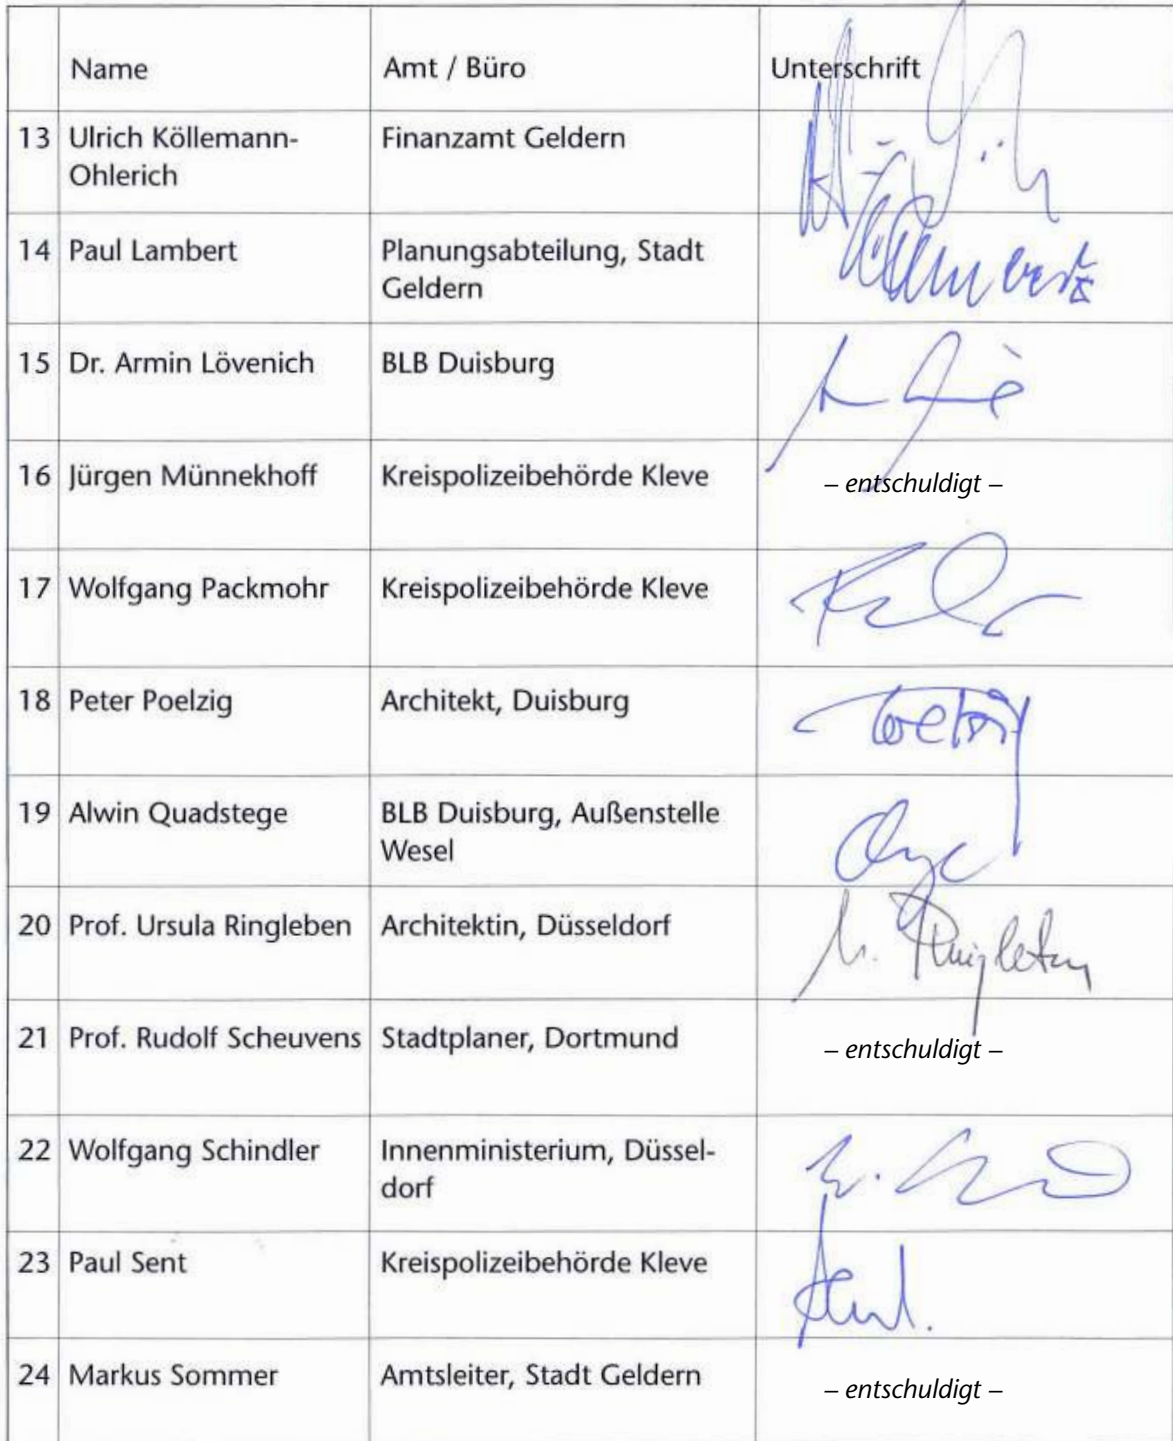 Name Amt / Büro Unterschrift
13 Ulrich Köllemann- Finanzamt Geldern
Ohlerich
14 Paul Lambert Planungsabteilung, Stadt
Geldern
15 Dr. Armin Lövenich BLB Duisburg
16 Jürgen Münnekhoff Kreispolizeibehörde Kleve – entschuldigt –
17 Wolfgang Packmohr Kreispolizeibehörde Kleve
18 Peter Poelzig Architekt, Duisburg
19 Alwin Quadstege BLB Duisburg, Außenstelle
Wesel
20 Prof. Ursula Ringleben Architektin, Düsseldorf
21 Prof. Rudolf Scheuvens Stadtplaner, Dortmund – entschuldigt –
22 Wolfgang Schindler Innenministerium, Düssel-
dorf
23 Paul Sent Kreispolizeibehörde Kleve
24 Markus Sommer Amtsleiter, Stadt Geldern – entschuldigt –